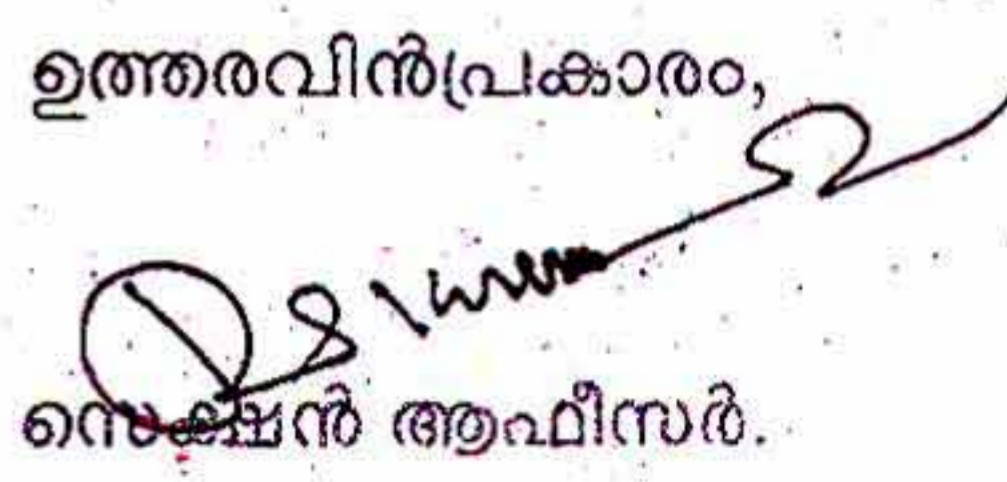 ഉത്തരവിൻപ്രകാരം,
സെക്ഷൻ ആഫീസർ.